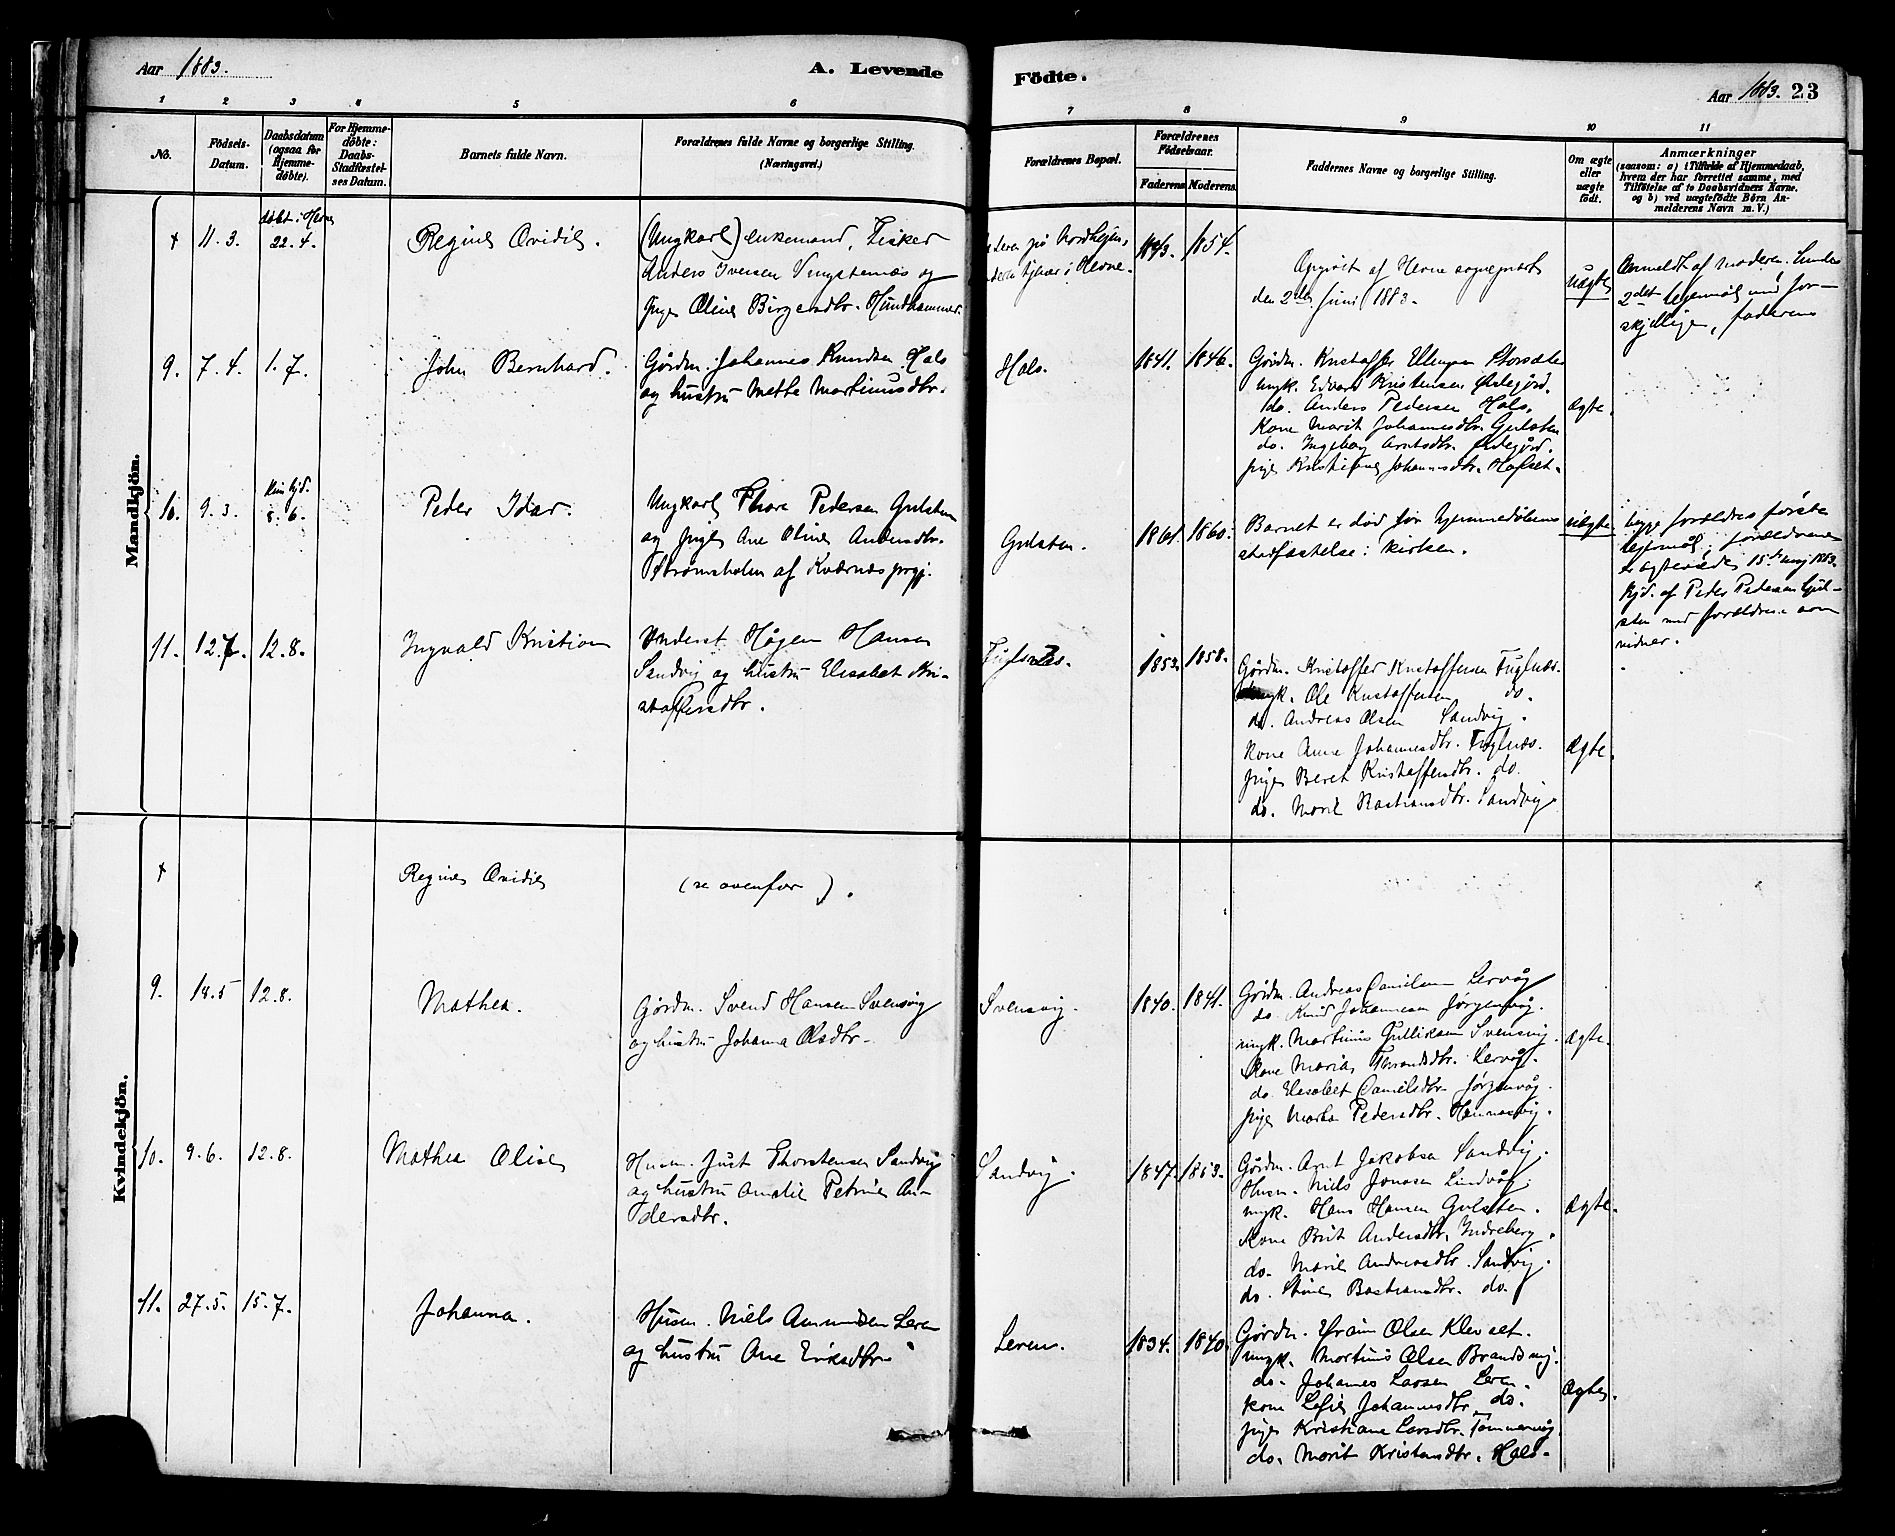 Aar 1883.
A. Levende
Födte.
Aar 1883. 23
1 2 3 4 5 6 7 8 9 10 11
No.
Födsels-Datum.
Daabsdatum (ogsaa for Hjemme-döbte).
For Hjemme-döbte: Daabs-Stadfæstel-ses Datum.
Barnets fulde Navn.
Forældrenes fulde Navne og borgerlige Stilling.
(Næringsvei.)
Forældrenes Bopæl.
Forældrenes Födselsaar.
Faderens Moderens.
Faddernes Navne og borgerlige Stilling.
Om ægte eller uægte födt.
Anmærkninger
(saasom: a) i Tilfælde af Hjemmedaab,
hvem der har forrettet samme, med
Tilföielse af to Daabsvidners Navne.
og b) ved uægtefödte Börn An-
melderens Navn m. V.)
Mandkjön.
+ 11.3. døbt i Hevne 22.4.
Regine Ovidie.
(Ungkarl) enkemand, Fisker
Anders Iversen Vingsternæs og
pige Oline Birgersdtr. Hundhammer.
1843. 1854.
Opgivet af Hevne sogneprest
den 2den Juni 1883.
uægte
Anmeldt af Moderen.
2det lejermål med for-
skjellige, faderens
9. 7.4. 1.7.
John Bernhard.
Gårdm. Johannes Knudsen Hals
og hustru Mette Martinusdtr.
Hals.
1841. 1846.
Gårdm. Kristoffer Ellingsen Storsæter
ungk. Edvard Kristensen Østegård.
do. Anders Pedersen Hals.
Kone Marit Johannesdtr. Gulsten
do. Ingeborg Arntsdtr. Østegård.
pige Kristine Johannesdtr. Hafset.
ægte.
10. 9.3. hjd. 8.6.
Peder Idar.
Ungkarl Thore Pedersen Gulsten
og pige Ane Oline Andersdtr.
Strømsholm af Kværnæs prgj.
Gulsten.
1861. 1860.
Barnet er død før hjemmedåbens
stadfæstelse i kirken.
uægte
begge forældres første
lejermål; forældrene
er ægteviede 15de maj 1883.
Hjd. af Peder Pedersen Gul-
sten med forældrene som
vidner.
11. 12.7. 12.8.
Ingvald Kristian
Inderst Hågen Hansen
Sandvig og hustru Elisabet Kri-
stoffersdtr.
Fuglnæs.
1853. 1858.
Gårdm. Kristoffer Kristoffersen Fuglnæs.
ungk. Ole Kristoffersen do.
do. Andreas Olsen Sandvig.
Kone Anne Johannesdtr. Fuglnæs.
pige Beret Kristoffersdtr. do.
do. Marit Bastiansdtr. Sandvig.
ægte.
Kvindekjön.
+
Regine Ovidie
(se ovenfor).
9. 14.5 12.8.
Mathea.
Gårdm. Svend Hansen Svensvig
og hustru Johanna Olsdtr.
Svensvig.
1840. 1841.
Gårdm. Andreas Danielsen Lervåg
do. Knud Johannesen Jørgenvåg.
ungk. Martinus Gulliksen Svensvig.
Kone Maria Throndsdtr. Lervåg.
do. Elisabet Danielsdtr. Jørgenvåg.
pige Marta Pedersdtr. Hennasvig.
ægte.
10. 9.6. 12.8.
Mathea Olise
Husm. Just Thorstensen Sandvig
og hustru Amalie Petrine An-
dersdtr.
Sandvig.
1847. 1853.
Gårdm. Arnt Jakobsen Sandvig.
Husm. Niels Jonasen Lindvåg.
ungk. Hans Hansen Gulsten.
Kone Brit Andersdtr. Indreberg.
do. Marie Andreasdtr. Sandvig.
do. Stine Bastiansdtr. do.
ægte.
11. 27.5. 15.7.
Johanna.
Husm. Niels Amundsen Leren
og hustru Ane Eriksdtr.
Leren.
1834. 1840.
Gårdm. Efraim Olsen Klevset.
ungk. Martinus Olsen Brandsvig.
do. Johannes Larsen Leren.
kone Sofie Johannesdtr. do.
pige Kristiane Larsdtr. Tømmervåg
do. Marit Kristensdtr. Hals.
ægte.